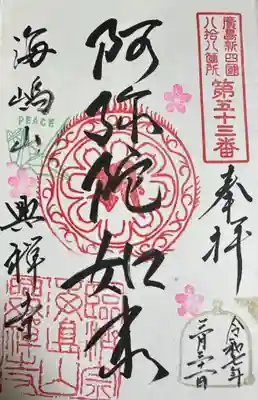 廣島新四國
八拾八箇所
第五十三番
奉拝
令和七年
三月三十一日
阿弥陀如来
PEACE
海嶋山
興禅寺